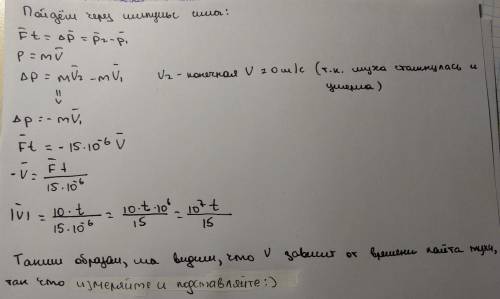 Пойдём через импульс силы:
F̄t = Δp̄ = p̄₂ - p̄₁
P = mV̄
Δp = mV̄₂ - mV̄₁ V₂ - конечная V = 0 м/с (т.к. муха столкнулась и
умерла)
⇓
Δp = - mV̄₁
F̄t = - 15·10⁻⁶ V̄
-V̄ = F̄t / 15·10⁻⁶
|V̄| = 10·t / 15·10⁻⁶ = 10·t·10⁶ / 15 = 10⁷t / 15
Таким образом, мы видим, что V зависит от времени мухи,
так что измеряйте и подставляйте:)